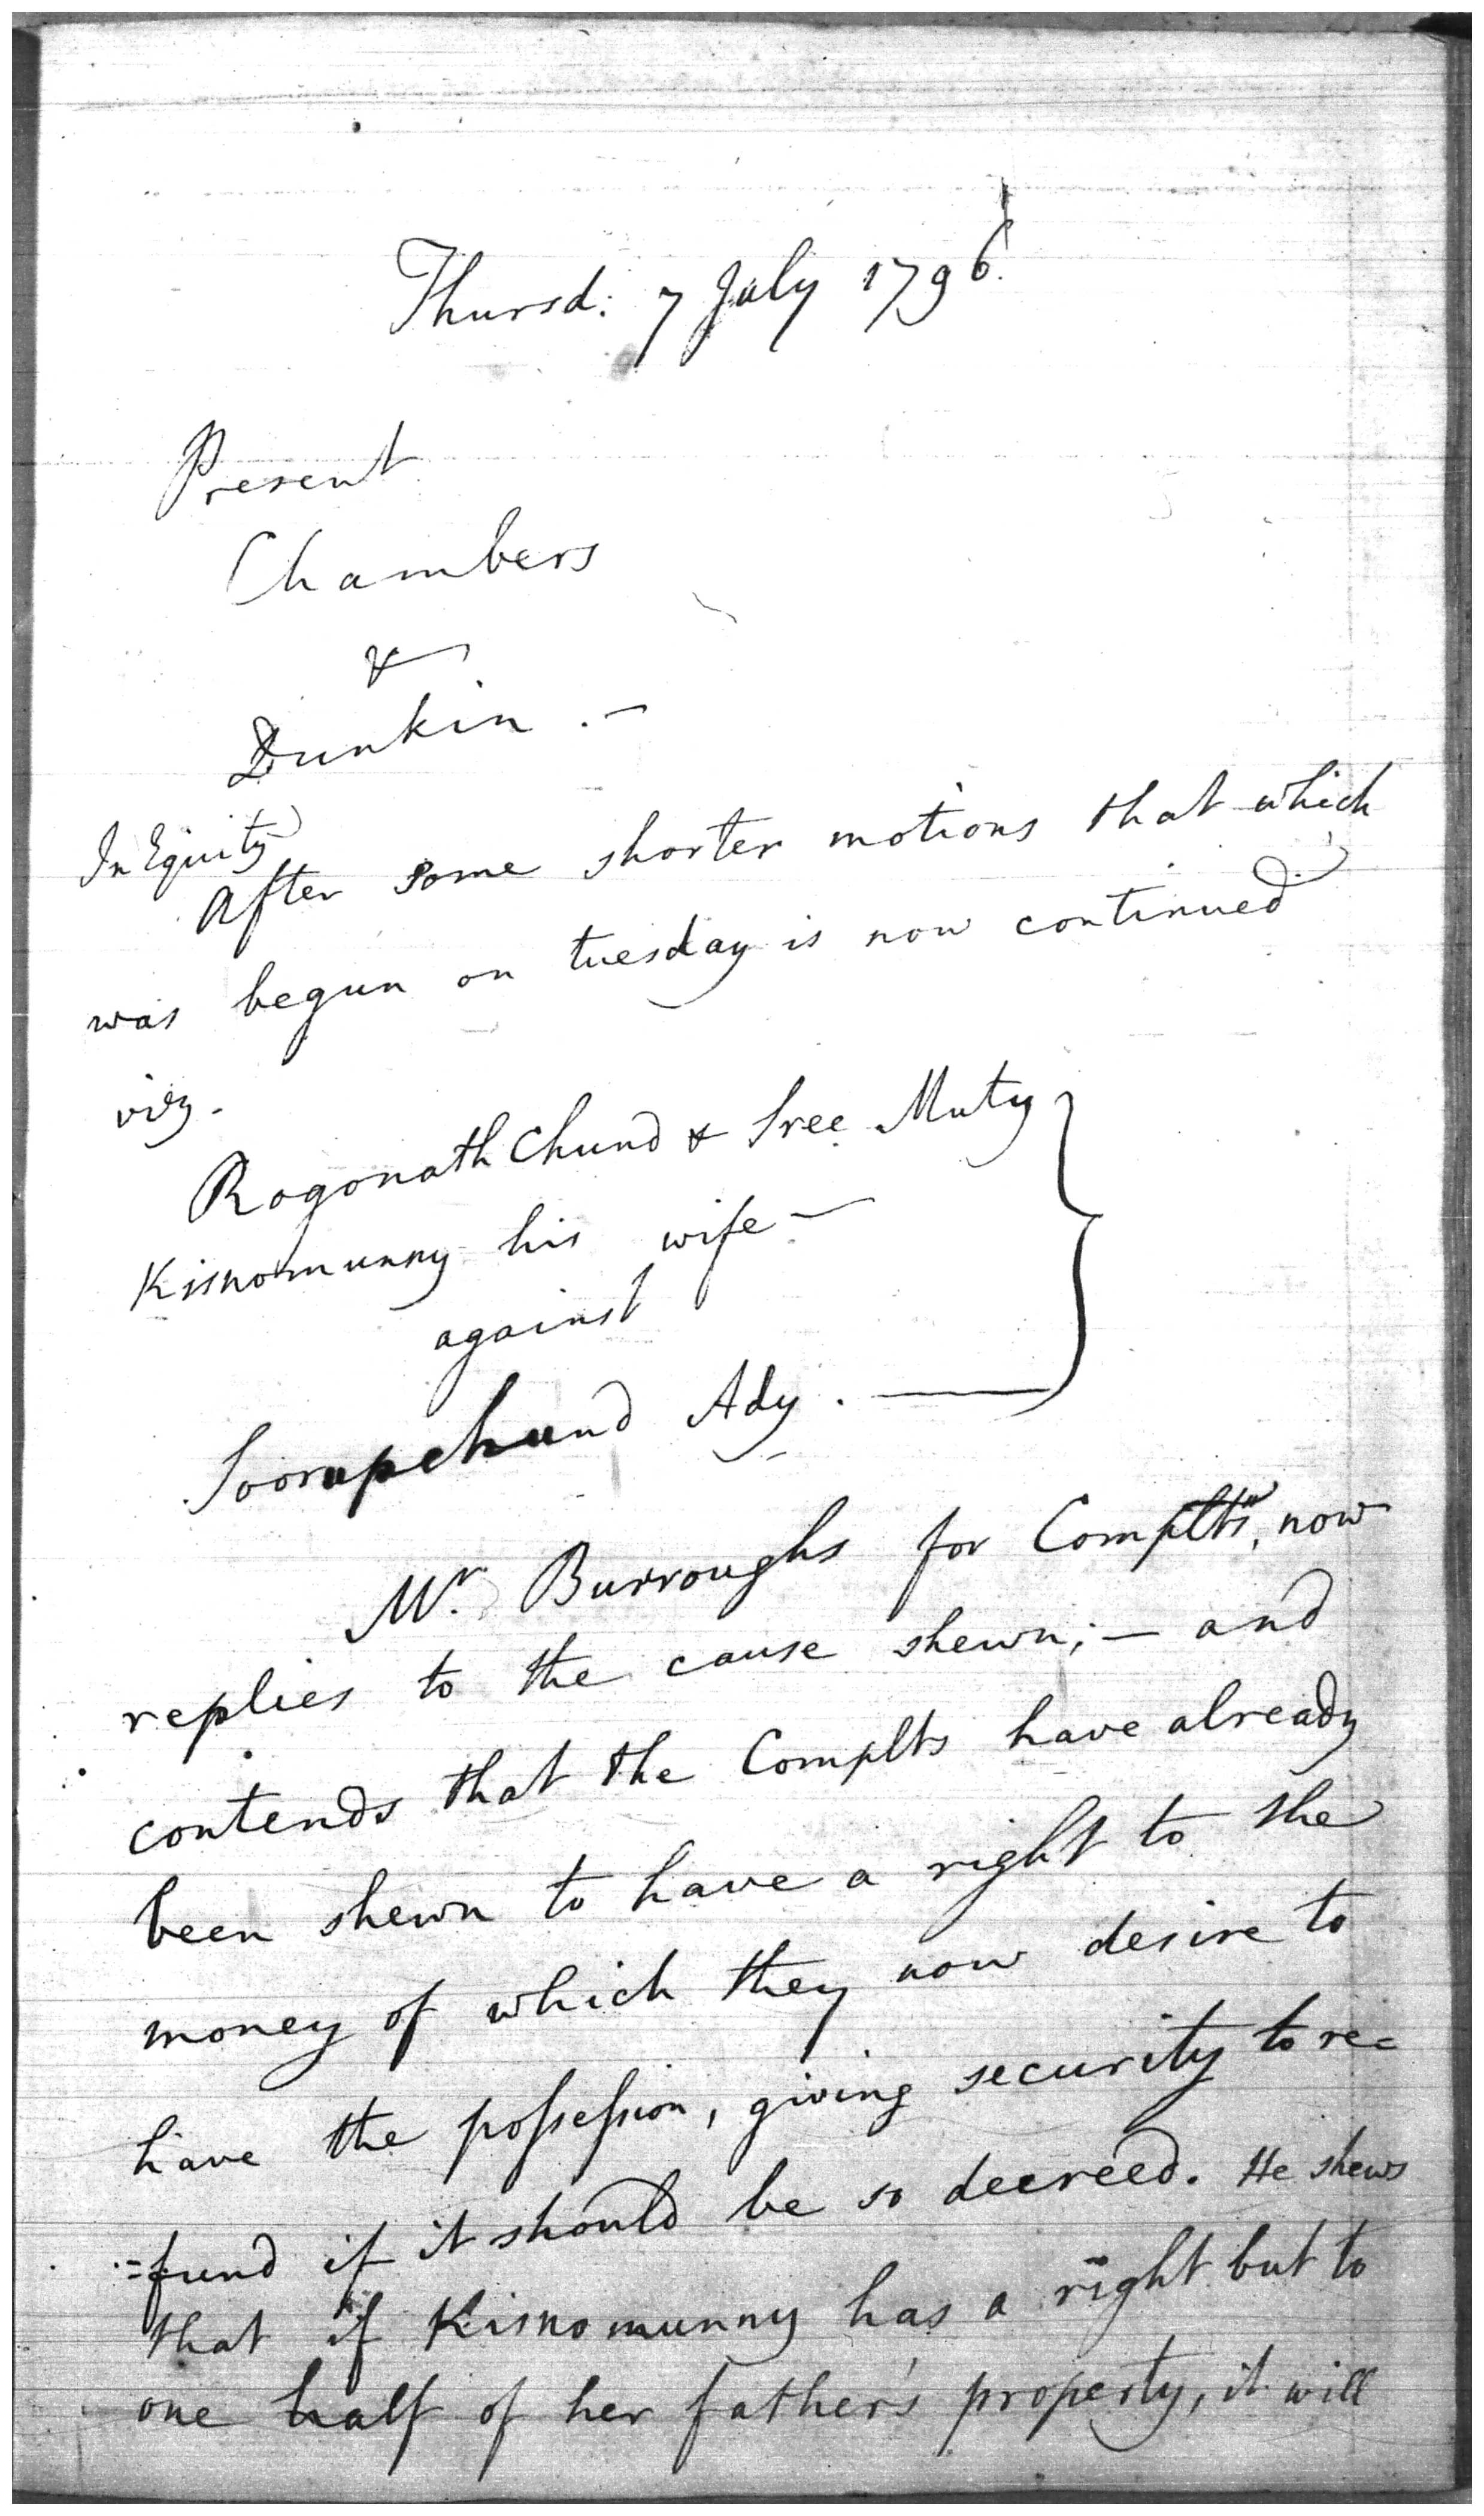 Thursd: 7 July 1796.
Present
Chambers
&
Dunkin. -
In Equity
After some shorter motions that which
was begun on tuesday is now continued.
viz.
Rogonath Chund & Sree Muty
Kisnomunny his wife —
against
Soorupchund Ady. —
Mr. Burroughs for Complts, now
replies to the cause shewn; — and
contends that the Complts have already
been shewn to have a right to the
money of which they now desire to
have the possession, giving security to re=
=fund if it should be so decreed. He shews
that if Kisnomunny has a right but to
one half of her father's property, it will